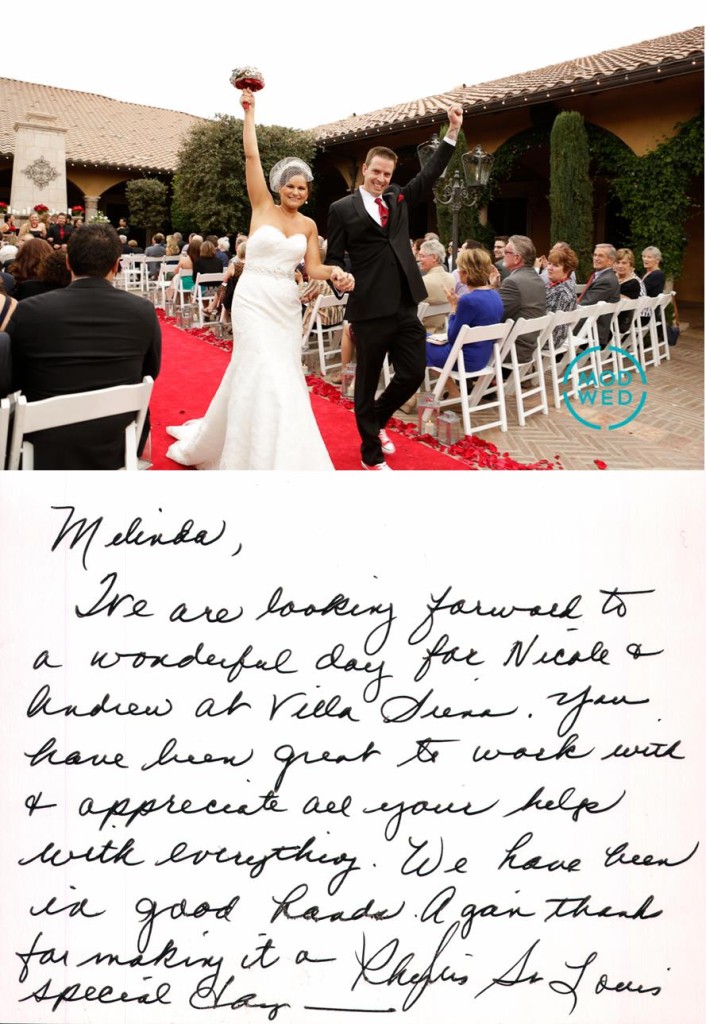 MOD
WED
Melinda,
We are looking forward to
a wonderful day for Nicole &
Andrew at Villa Siena. You
have been great to work with
& appreciate all your help
with everything. We have been
in good hands. Again thank
for making it a
special day
Phyllis St Louis